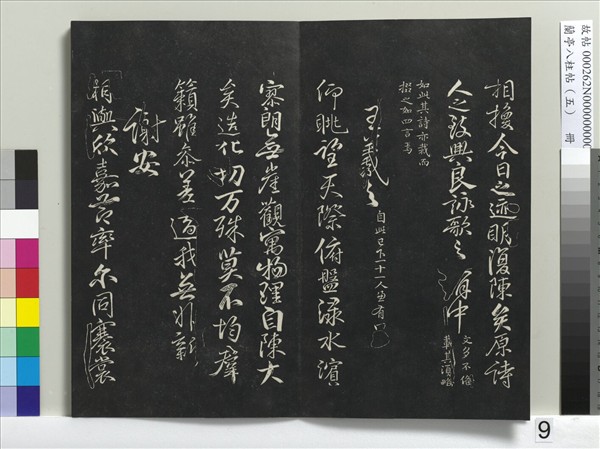 相擾今日之迹明復陳矣原詩
人之致興良詠歌之有由
文多不備
如此其詩亦裁而
掇之如四言焉
王羲之
自此已下一十一人並有
仰眺望天際俯盤淥水濱
寥朗無崖觀寓物理自陳大
矣造化功万殊莫不均羣
籟雖參差適我無非新
謝安
相與欣嘉節率尔同褰裳
故帖 000262N000000000
蘭亭八柱帖（五） 冊
9